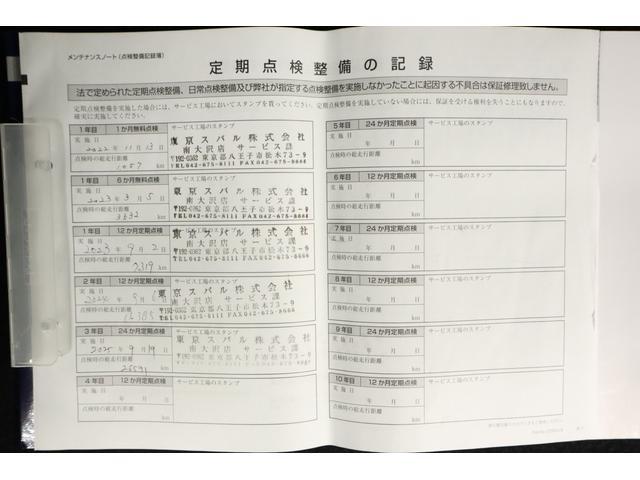 メンテナンスノート(点検整備記録簿)
定期点検整備の記録
法で定められた定期点検整備、日常点検整備及び弊社が指定する点検整備を実施しなかったことに起因する不具合は保証修理致しません。
定期点検整備を実施した場合には、サービス工場においてスタンプを貰ってください。定期点検整備を実施していない場合には、保証を受ける権利を失うことにもなりますので、
確実に実施してください。
1年目 1か月無料点検 サービス工場のスタンプ
実施日
2022年11月13日
点検時の総走行距離
1057 km
東京スバル株式会社
南大沢店 サービス課
〒192-0362 東京都八王子市松木73-9
TEL042-675-8111 FAX042-675-8666
1年目 6か月無料点検 サービス工場のスタンプ
実施日
2023年3月5日
点検時の総走行距離
3632 km
東京スバル株式会社
南大沢店 サービス課
〒192-0362 東京都八王子市松木73-9
TEL042-675-8111 FAX042-675-8666
1年目 12か月定期点検 サービス工場のスタンプ
実施日
2023年9月2日
点検時の総走行距離
km
東京スバル株式会社
南大沢店 サービス課
〒192-0362 東京都八王子市松木73-9
TEL042-675-8111 FAX042-675-8666
2年目 12か月定期点検 サービス工場のスタンプ
実施日
2024年9月
点検時の総走行距離
km
東京スバル株式会社
南大沢店 サービス課
〒192-0362 東京都八王子市松木73-9
TEL042-675-8111 FAX042-675-8666
3年目 24か月定期点検 サービス工場のスタンプ
実施日
2025年9月19日
点検時の総走行距離
km
東京スバル株式会社
南大沢店 サービス課
〒192-0362 東京都八王子市松木73-9
TEL042-675-8111 FAX042-675-8666
4年目 12か月定期点検 サービス工場のスタンプ
実施日
年 月 日
点検時の総走行距離
km
5年目 24か月定期点検 サービス工場のスタンプ
実施日
年 月 日
点検時の総走行距離
km
6年目 12か月定期点検 サービス工場のスタンプ
実施日
年 月 日
点検時の総走行距離
km
7年目 24か月定期点検 サービス工場のスタンプ
実施日
年 月 日
点検時の総走行距離
km
8年目 12か月定期点検 サービス工場のスタンプ
実施日
年 月 日
点検時の総走行距離
km
9年目 24か月定期点検 サービス工場のスタンプ
実施日
年 月 日
点検時の総走行距離
km
10年目 12か月定期点検 サービス工場のスタンプ
実施日
年 月 日
点検時の総走行距離
km